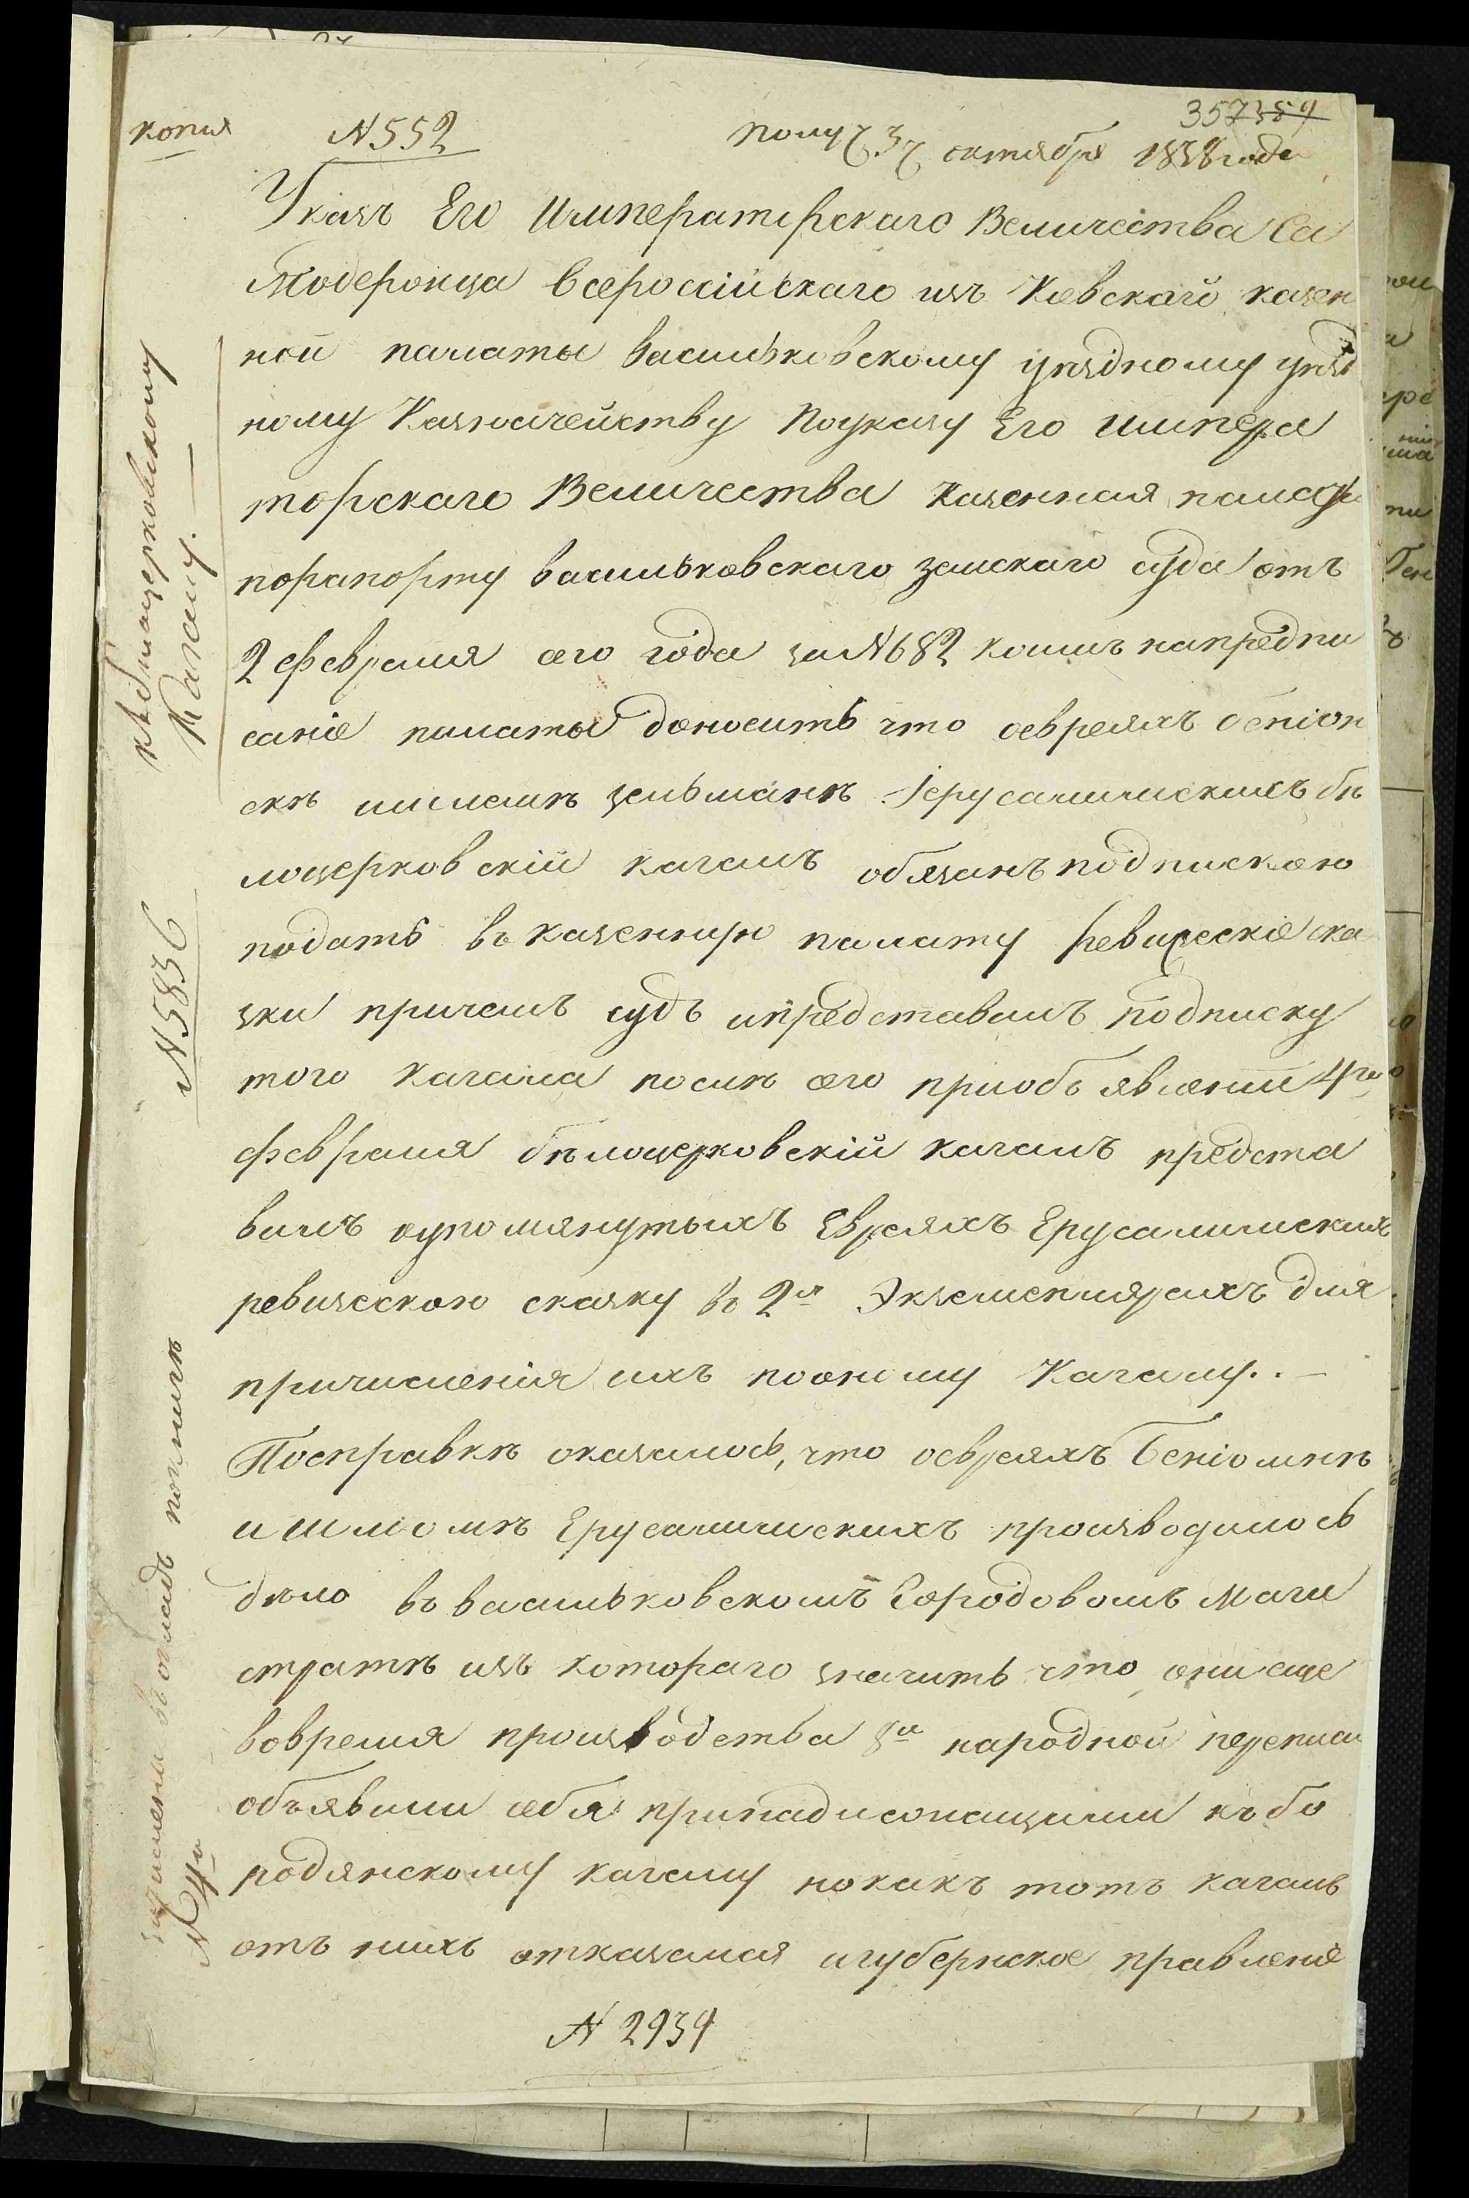 357 384
копия
N 552
октября 1838 года
Указъ Его Императорскаго Величества Са
модержца всероссійскаго изъ Кіевской казен
ной палаты васильковскому уѣздному уѣзд
ному Казначейству Поуказу Его импера
торскаго Величества Казенная палата
порапорту васильковскаго земскаго суда отъ
2 февраля сего года за N 682 коимъ напредпи
саніе палаты доноситъ что оевреяхъ
Зельманѣ Іерусалимскихъ бѣ
лоцерковскій кагалъ обязанъ подпискою
подать въ казенную палату ревизскіе ска
зки причемъ судъ ипредставилъ подписку
того кагала послѣ сего приобъявленіи 4го
февраля бѣлоцерковскій кагалъ предста
вилъ оупомянутыхъ Евреяхъ Ерусалимскихъ
ревизскою сказку въ 2хъ Экземплярахъ для
причисленія ихъ поономy Кагалу. . —
Посправкѣ оказалось, что оевреяхъ Беніоминѣ
и Шліомѣ Ерусалимскихъ производилось
дѣло въ васильковскомъ Городовомъ Маги
стратѣ изъ котораго значитъ что они еще
вовремя производства 8й народной переписи
объявили себя принадлежащими къ бо
родянскому кагалу нокакъ тотъ кагалъ
отъ нихъ отказался игубернское правленіе
N 2934
къ бѣлоцерковскому
Кагалу. —
N 5836
N 4й